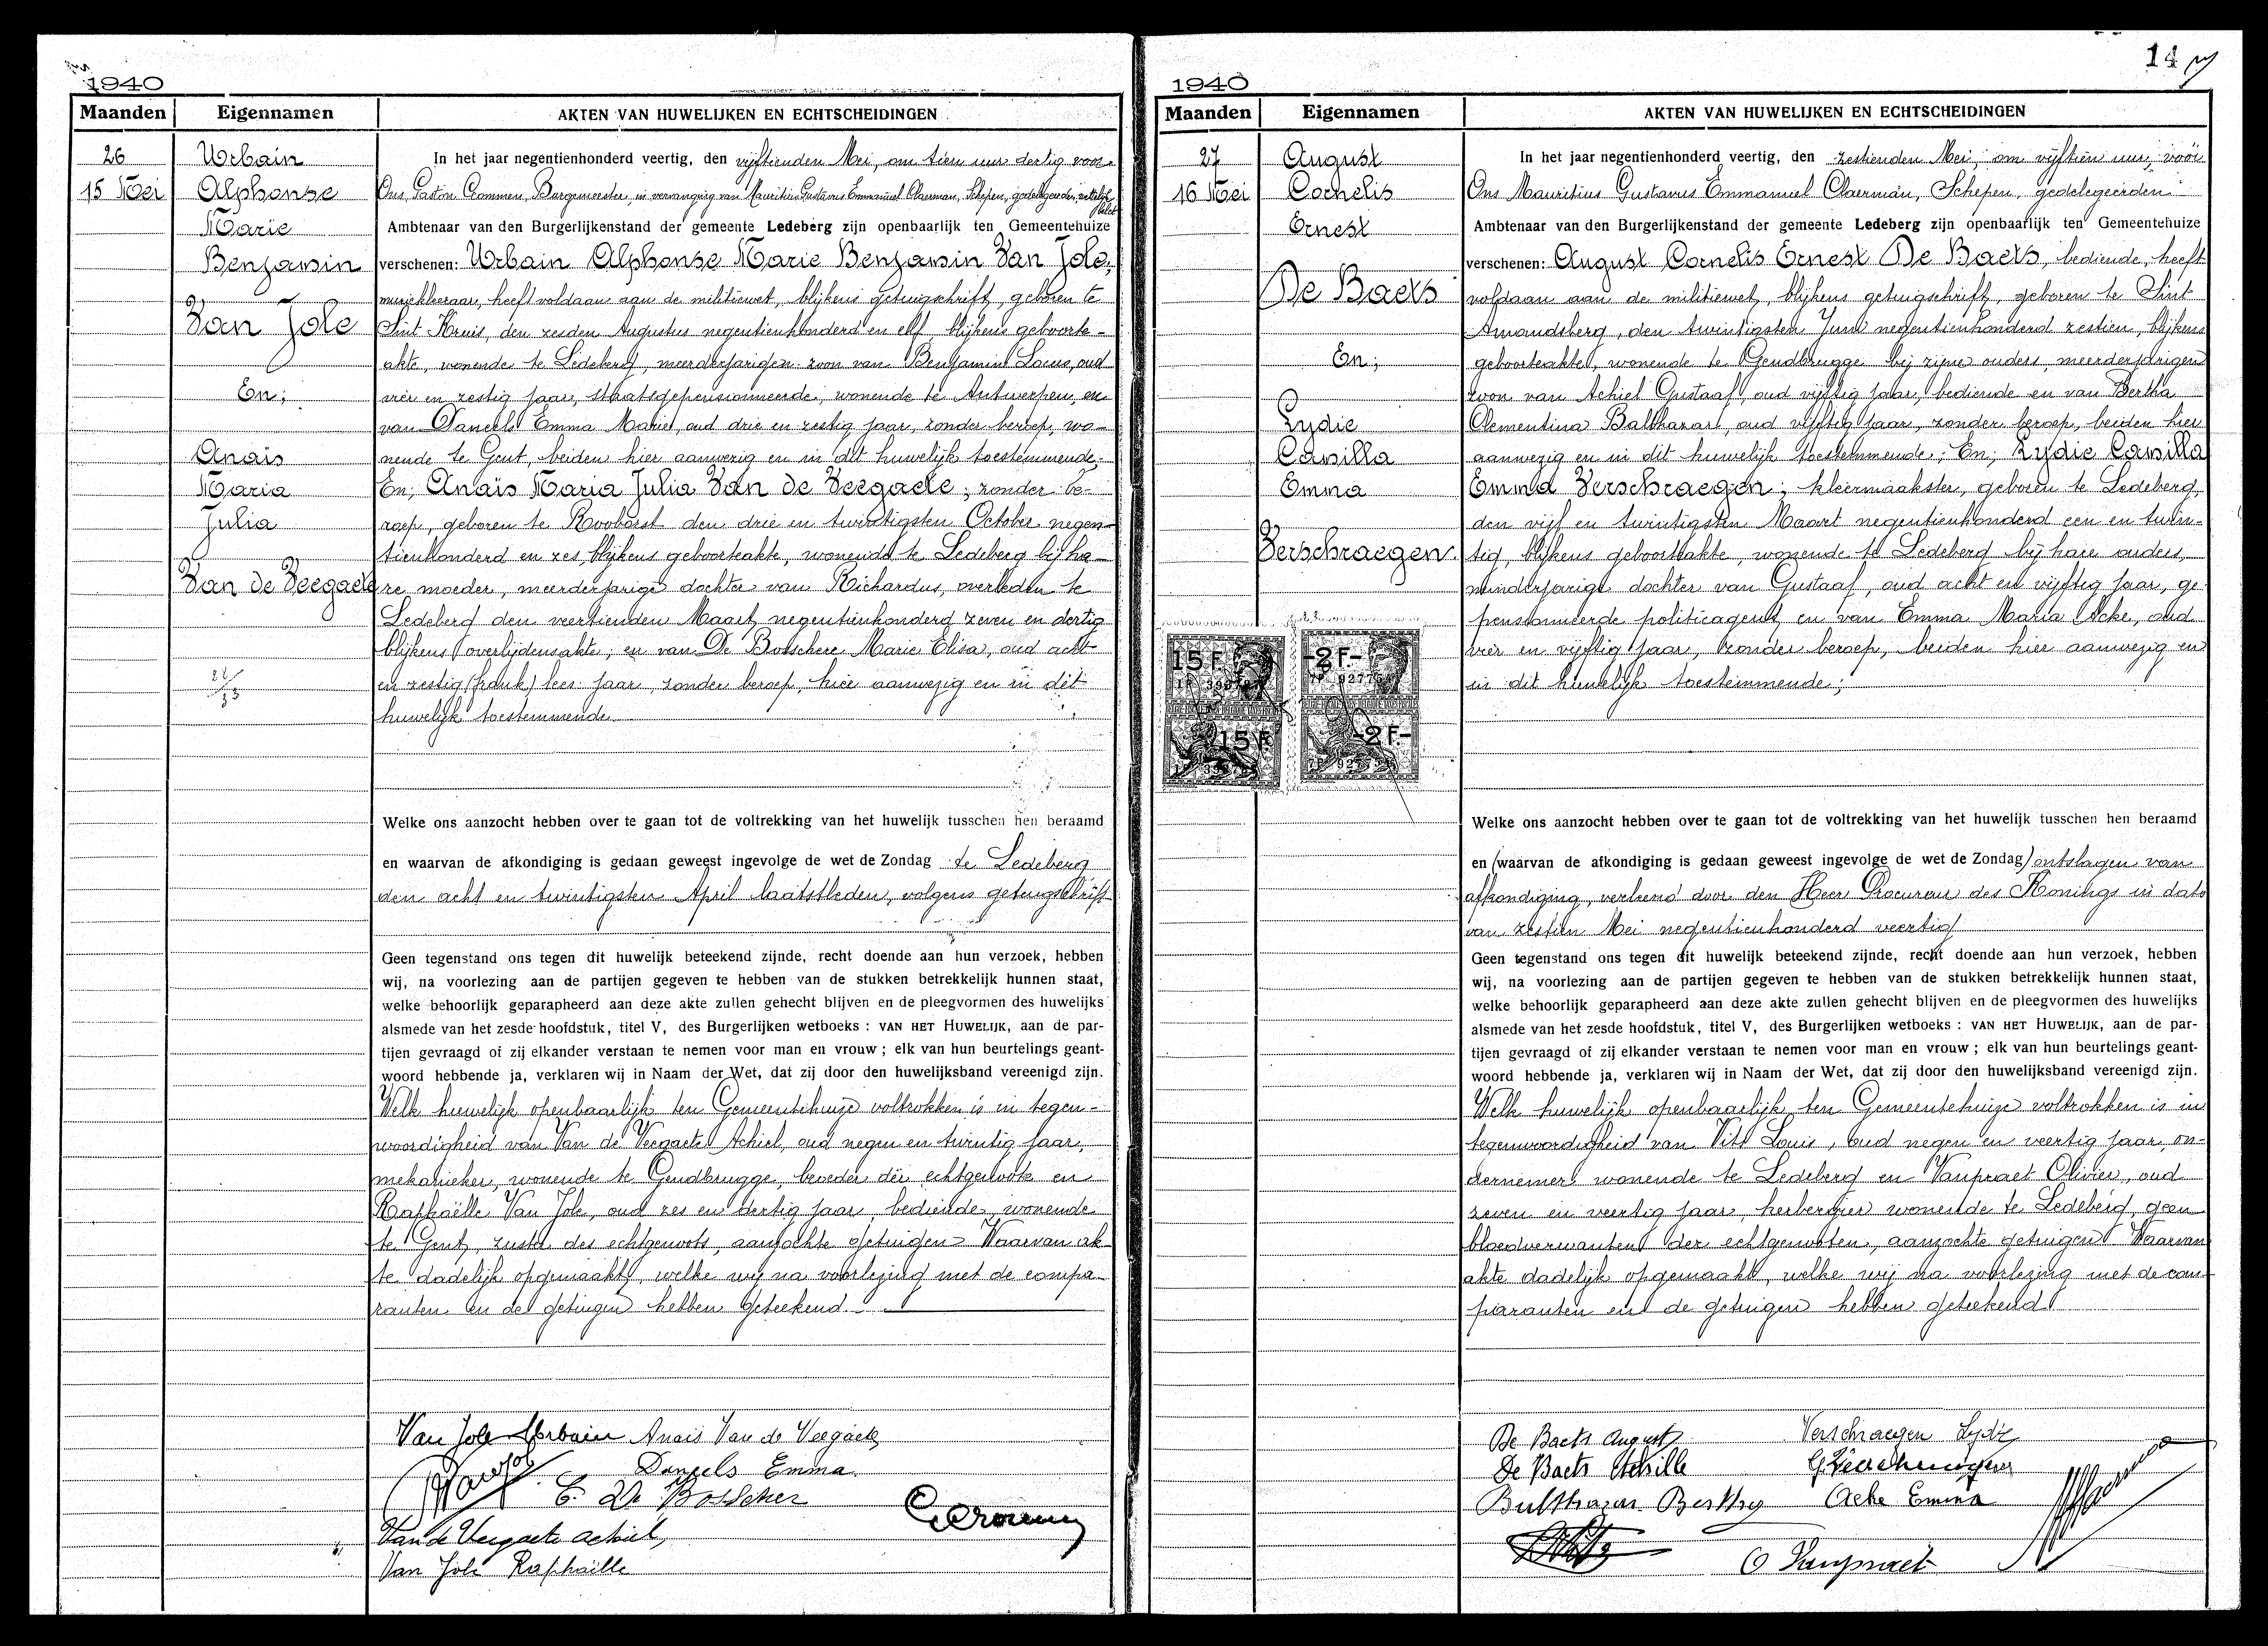 1940
Maanden Eigennamen AKTEN VAN HUWELIJKEN EN ECHTSCHEIDINGEN
26
15 Mei
Urbain
Alphonse
Marie
Benjamin
Van Jole
En;
Anaïs
Maria
Julia
Van de Veegaete
In het jaar negentienhonderd veertig, den vijftienden Mei, om tien uur dertig voor
Ons, Gaston Crommen, Burgemeester, in vervanging van Mauritius Gustavus Emmanuel Claerman, Schepen, gedelegeerden, wettelijk belet
Ambtenaar van den Burgerlijkenstand der gemeente Ledeberg zijn openbaarlijk ten Gemeentehuize
verschenen: Urbain Alphonse Marie Benjamin Van Jole,
muziekleeraar, heeft voldaan aan de militiewet, blijkens getuigschrift, geboren te
Sint Kruis, den zesden Augustus negentienhonderd en elf, blijkens geboorte-
akte, wonende te Ledeberg, meerderjarigen zoon van Benjamin Louis, oud
vier en zestig jaar, staatsgepensionneerde, wonende te Antwerpen, en
van Daneels Emma Marie, oud drie en zestig jaar, zonder beroep, wo-
nende te Gent, beiden hier aanwezig en in dit huwelijk toestemmende;
En; Anaïs Maria Julia Van de Veegaete; zonder be-
roep, geboren te Rooborst den drie en twintigsten October negen-
tienhonderd en zes, blijkens geboorteakte, wonende te Ledeberg bij ha-
re moeder, meerderjarige dochter van Richardus, overleden te
Ledeberg den veertienden Maart negentienhonderd zeven en dertig
blijkens overlijdensakte, en van De Bosschere Marie Elisa, oud acht
en zestig (frank) lees: jaar, zonder beroep, hier aanwezig en in dit
huwelijk toestemmende.
Welke ons aanzocht hebben over te gaan tot de voltrekking van het huwelijk tusschen hen beraamd
en waarvan de afkondiging is gedaan geweest ingevolge de wet de Zondag te Ledeberg
den acht en twintigsten April laatstleden, volgens getuigschrift
Geen tegenstand ons tegen dit huwelijk beteekend zijnde, recht doende aan hun verzoek, hebben
wij, na voorlezing aan de partijen gegeven te hebben van de stukken betrekkelijk hunnen staat,
welke behoorlijk geparapheerd aan deze akte zullen gehecht blijven en de pleegvormen des huwelijks
alsmede van het zesde hoofdstuk, titel V, des Burgerlijken wetboeks : VAN HET HUWELIJK, aan de par-
tijen gevraagd of zij elkander verstaan te nemen voor man en vrouw ; elk van hun beurtelings geant-
woord hebbende ja, verklaren wij in Naam der Wet, dat zij door den huwelijksband vereenigd zijn.
Welk huwelijk openbaarlijk ten Gemeentehuize voltrokken is in tegen-
woordigheid van Van de Veegaete Achiel, oud negen en twintig jaar,
mekanieker, wonende te Gendbrugge, broeder der echtgenoote en
Raphaëlle Van Jole, oud zes en dertig jaar, bediende, wonende
te Gent, zuster des echtgenoots, aanzochte getuigen Waarvan ak-
te dadelijk opgemaakt, welke wij na voorlezing met de compa-
ranten en de getuigen hebben geteekend.
Van Jole Urbain Anaïs Van de Veegaete
Daneels Emma.
E. De Bosscher
Van de Veegaete Achiel,
Van Jole Raphaëlle
14
1940
Maanden Eigennamen AKTEN VAN HUWELIJKEN EN ECHTSCHEIDINGEN
27
16 Mei
August
Cornelis
Ernest
De Baets
En;
Lydie
Camilla
Emma
Verschraegen
15 F. -2 F.-
15 F. -2 F.-
In het jaar negentienhonderd veertig, den zestienden Mei, om vijftien uur, vóór
Ons Mauritius Gustavus Emmanuel Claerman, Schepen, gedelegeerden
Ambtenaar van den Burgerlijkenstand der gemeente Ledeberg zijn openbaarlijk ten Gemeentehuize
verschenen: August Cornelis Ernest De Baets, bediende, heeft
voldaan aan de militiewet, blijkens getuigschrift, geboren te Sint
Amandsberg, den twintigsten Juni negentienhonderd zestien, blijkens
geboorteakte, wonende te Gendbrugge bij zijne ouders, meerderjarigen
zoon van Achiel Gustaaf, oud vijftig jaar, bediende en van Bertha
Clementina Balthazar, oud vijftig jaar, zonder beroep, beiden hier
aanwezig en in dit huwelijk toestemmende; En; Lydie Camilla
Emma Verschraegen; kleermaakster, geboren te Ledeberg,
den vijf en twintigsten Maart negentienhonderd een en twin-
tig, blijkens geboorteakte, wonende te Ledeberg bij hare ouders,
minderjarige dochter van Gustaaf, oud acht en vijftig jaar, ge-
pensionneerde politieagent, en van Emma Maria Acke, oud
vier en vijftig jaar, zonder beroep, beiden hier aanwezig en
in dit huwelijk toestemmende;
Welke ons aanzocht hebben over te gaan tot de voltrekking van het huwelijk tusschen hen beraamd
en (waarvan de afkondiging is gedaan geweest ingevolge de wet de Zondag) ontslagen van
afkondiging, verleend door den Heer Procureur des Konings in dato
van zestien Mei negentienhonderd veertig
Geen tegenstand ons tegen dit huwelijk beteekend zijnde, recht doende aan hun verzoek, hebben
wij, na voorlezing aan de partijen gegeven te hebben van de stukken betrekkelijk hunnen staat,
welke behoorlijk geparapheerd aan deze akte zullen gehecht blijven en de pleegvormen des huwelijks
alsmede van het zesde hoofdstuk, titel V, des Burgerlijken wetboeks : VAN HET HUWELIJK, aan de par-
tijen gevraagd of zij elkander verstaan te nemen voor man en vrouw ; elk van hun beurtelings geant-
woord hebbende ja, verklaren wij in Naam der Wet, dat zij door den huwelijksband vereenigd zijn.
Welk huwelijk openbaarlijk ten Gemeentehuize voltrokken is in
tegenwoordigheid van Vits Louis, oud negen en veertig jaar, on-
dernemer wonende te Ledeberg en Vanpraet Olivier, oud
zeven en veertig jaar, herbergier wonende te Ledeberg, geen
bloedverwanten der echtgenooten, aanzochte getuigen Waarvan
akte dadelijk opgemaakt, welke wij na voorlezing met de com-
paranten en de getuigen hebben geteekend
De Baets August Verschraegen Lydie
De Baets Achille
Balthazar Bertha Acke Emma
O Vanpraet